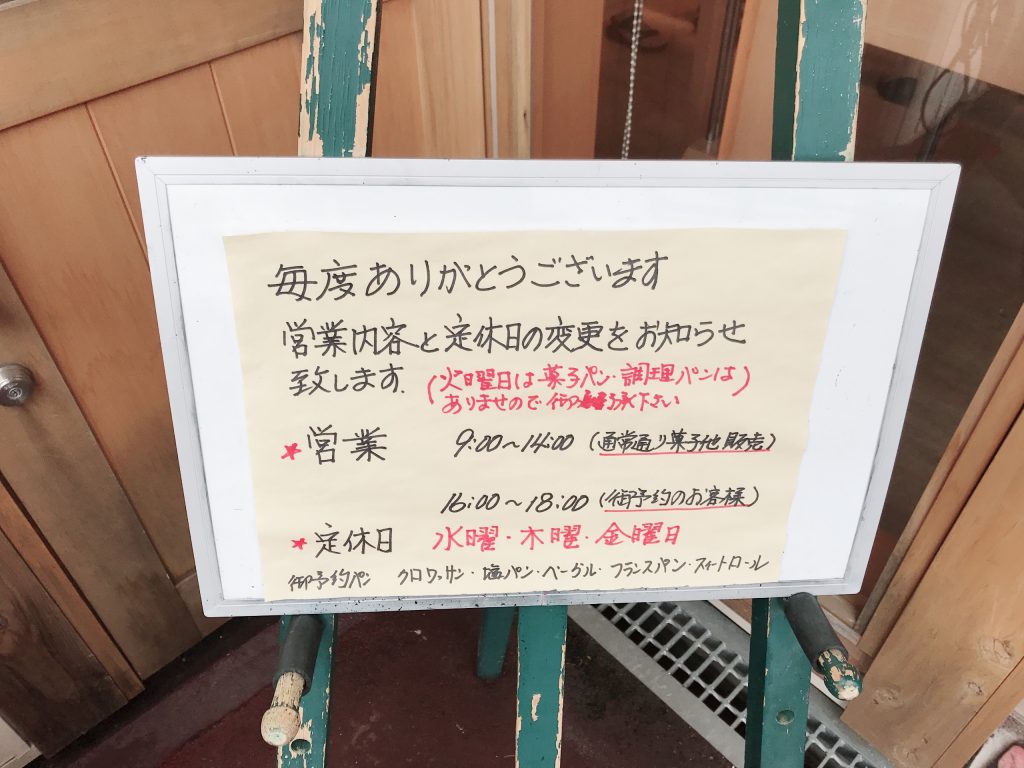 毎度ありがとうございます
営業内容と定休日の変更をお知らせ
致します.
(火曜日は菓子パン・調理パンは
ありませんので御了承下さい)
★営業 9:00～14:00 (通常通り菓子他販売)
16:00～18:00 (御予約のお客様)
★定休日 水曜・木曜・金曜日
御予約パン クロワッサン・塩パン・ベーグル・フランスパン・スイートロール